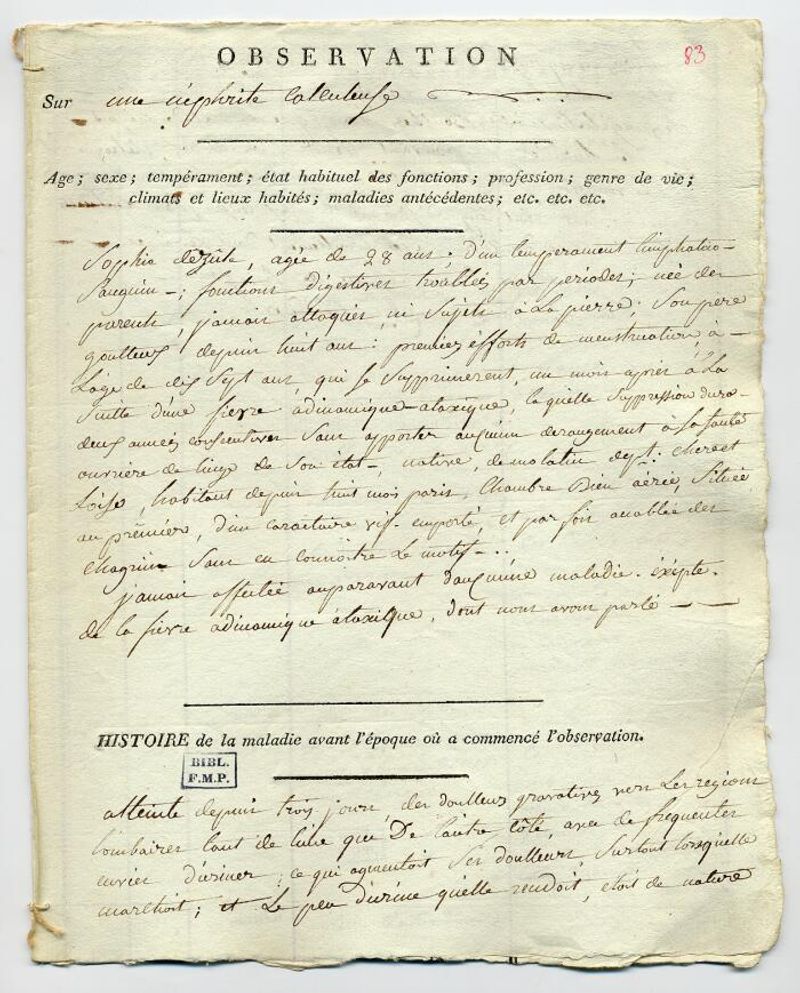 OBSERVATION
83
Sur une néphrite Calculeuse
Age; sexe; tempérament; état habituel des fonctions; profession; genre de vie;
climats et lieux habités; maladies antécédentes; etc. etc. etc.
Sophie , agée de 28 ans; d'un temperament limphatico-
sanguin-; fonctions digestives troublées par periodes; née des
parents, jamais attaqués, ni sujets à La pierre; Son pere
goutteux depuis huit ans: premiers éfforts de menstruation, à-
L'age de dix Sept ans, qui se Supprimerent, un mois après à La
suite d'une fievre adinamique-ataxique, laquelle Suppression dura-
deux années consecutives Sans apporter aucune derangement à Sa Santé
ouvrière de linge de Son état-, native, de dept: cher et
Loise, habitant depuis huit mois paris, Chambre Bien aérée, Située
au prémier, d'un caractaire vif- emporté, et par fois accablée des
chagrins Sans en connoitre Le motif-..
jamais affectée auparavant d'aucune maladie. éxépte.
de la fievre adinamique átaxique, dont nous avons parlé --
HISTOIRE de la maladie avant l'époque où a commencé l'observation.
BIBL.
F.M.P.
atteinte depuis trois jours, des doulleurs gravatives vers Les regions
lombaires tant de l'une que De l'autre côté, avec de frequentes
envies d'uriner; ce qui agmentoit Ses doulleurs, Surtout lorsquelle
marchoit; et Le peu d'urine quelle rendoit, étoit de nature